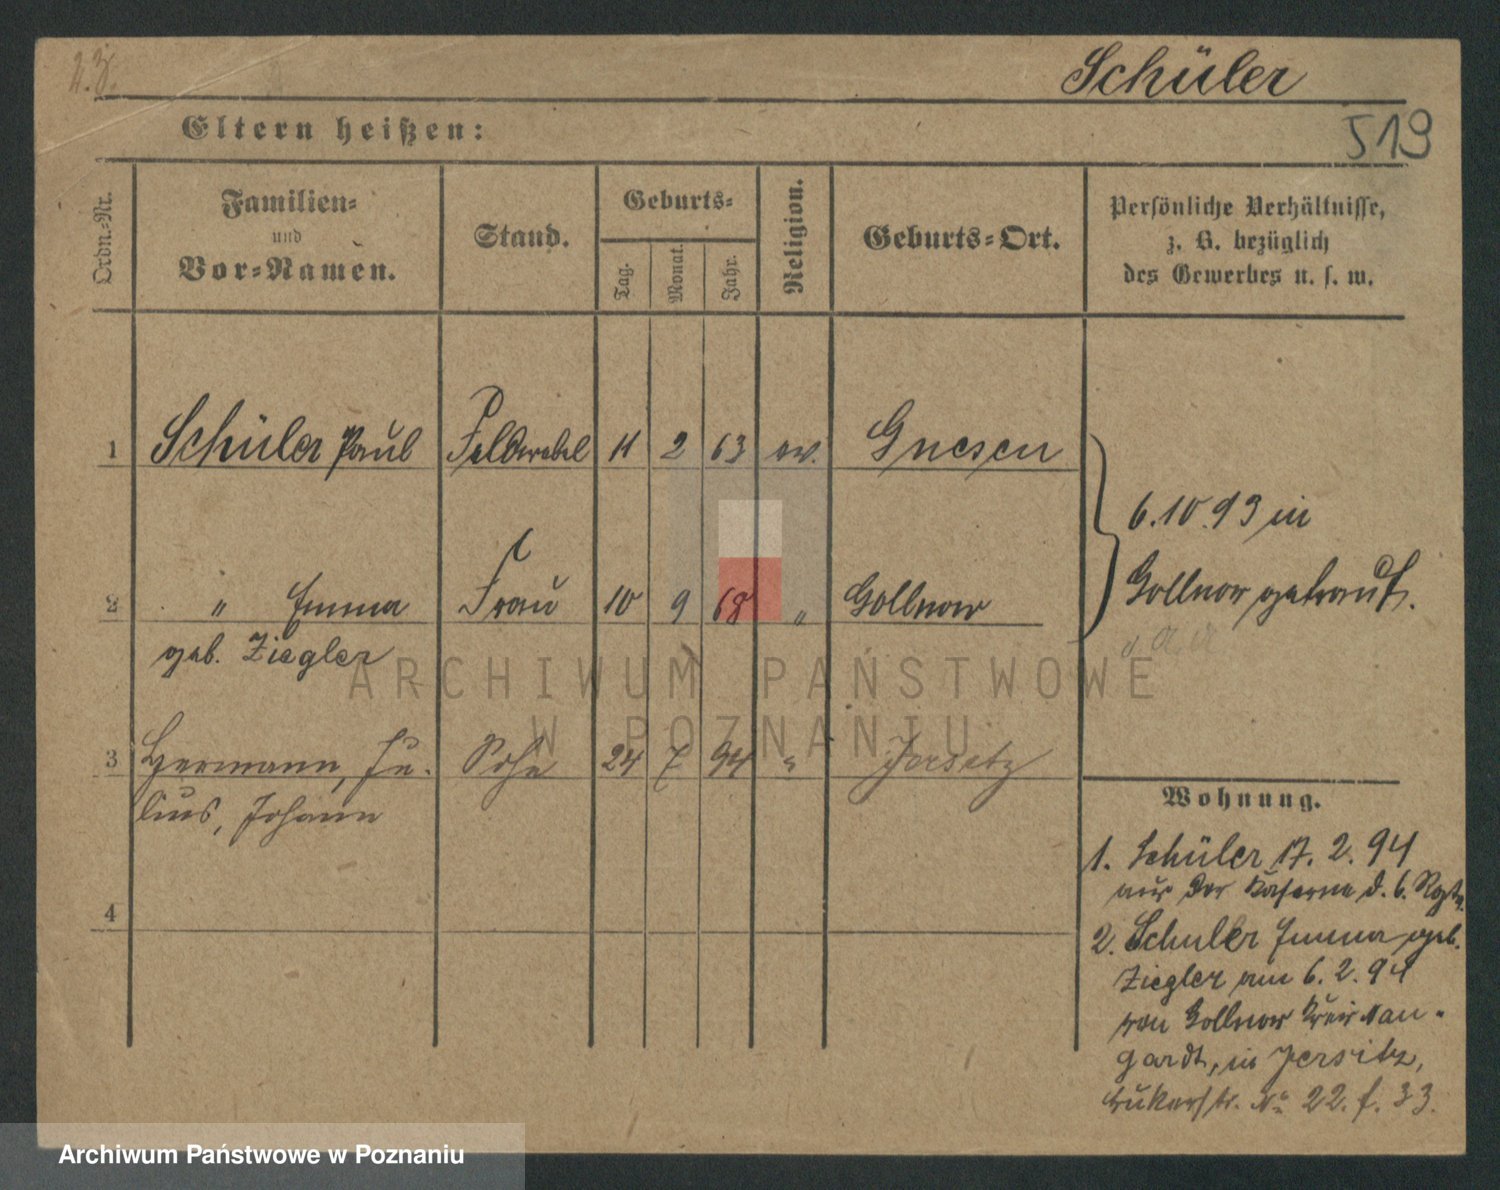 Schüler
519
Eltern heißen:
Ordn.-Nr.
Familien-
und
Vor-Namen.
Stand.
Geburts-
Tag.
Monat.
Jahr.
Religion.
Geburts-Ort.
Persönliche Verhältnisse,
z. B. bezüglich
des Gewerbes u. s. w.
1 Schüler Paul Feldwebel 11 2 63 ev. Gnesen
6.10.93 in
Gollnow getraut.
2 " Emma Frau 10 9 68 " Gollnow
geb. Ziegler
3 Hermann, Ju-
lius, Johann
Sohn 24 7 94 " Jersitz
4
Wohnung.
1. Schüler 17. 2. 94
aus der Kaserne d. 6. Rgts.
2. Schüler Emma geb.
Ziegler am 6. 2. 94
von Gollnow Kreis Nau-
gardt, in Jersitz,
No 22. f. 33.
ARCHIWUM PAŃSTWOWE
W POZNANIU
Archiwum Państwowe w Poznaniu